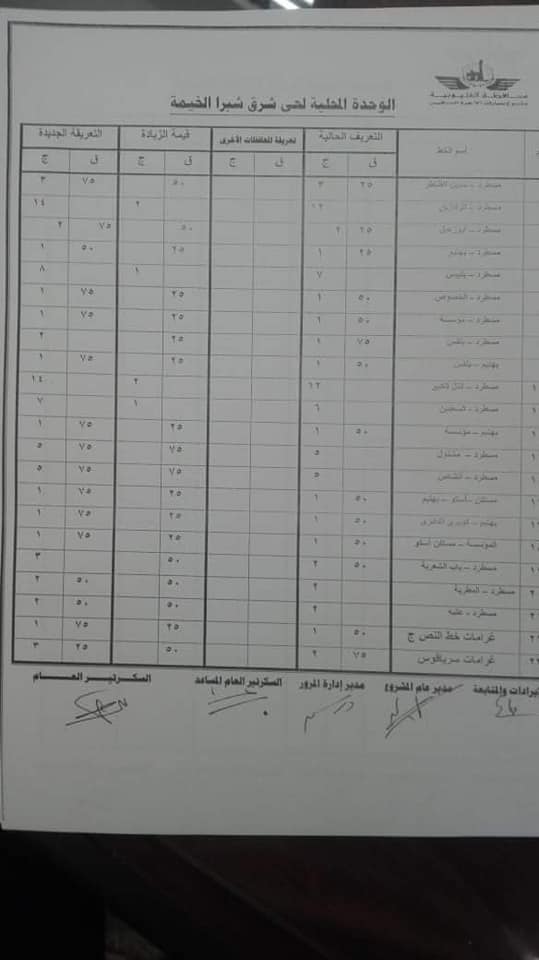 محافظة القليوبية
الوحدة المحلية لحى شرق شبرا الخيمة
اسم الخط التعريف الحالية تعريفة المحافظات الأخرى قيمة الزيادة التعريفة الجديدة
ق ج ق ج ق ج ق ج
٢٥ ٣ ٥٠ ٧٥ ٣
مسطرد - الزقازيق ١٢ ٢ ١٤
مسطرد - ابوزعبل ٢٥ ٢ ٥٠ ٧٥ ٢
مسطرد - بهتيم ٢٥ ١ ٢٥ ٥٠ ١
مسطرد - بلبيس ٧ ١ ٨
مسطرد - الخصوص ٥٠ ١ ٢٥ ٧٥ ١
مسطرد - مؤسسة ٥٠ ١ ٢٥ ٧٥ ١
مسطرد - باقس ٧٥ ١ ٢٥ ٢
بهتيم - باقس ٥٠ ١ ٢٥ ٧٥ ١
مسطرد - التل الكبير ١٢ ٢ ١٤
مسطرد - ٦ ١ ٧
بهتيم - مؤسسة ٥٠ ١ ٢٥ ٧٥ ١
مسطرد - مشتول ٥ ٧٥ ٧٥ ٥
مسطرد - انشاص ٥ ٧٥ ٧٥ ٥
مساكن اسكو - بهتيم ٥٠ ١ ٢٥ ٧٥ ١
بهتيم - كوبرى الدائرى ٥٠ ١ ٢٥ ٧٥ ١
المؤسسة - مساكن اسكو ٥٠ ١ ٢٥ ٧٥ ١
مسطرد - باب الشعرية ٥٠ ٢ ٥٠ ٣
مسطرد - المطرية ٢ ٥٠ ٥٠ ٢
مسطرد - عتبه ٢ ٥٠ ٥٠ ٢
غرامات خط النص ج ٥٠ ١ ٢٥ ٧٥ ١
غرامات سرياقوس ٧٥ ٢ ٥٠ ٢٥ ٣
والمتابعة مدير عام المشروع مدير إدارة المرور السكرتير العام المساعد السكرتير العام